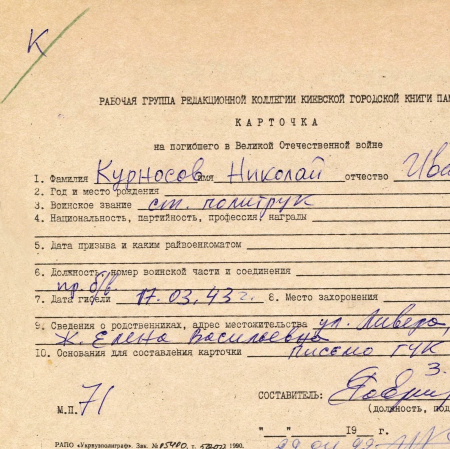 К
РАБОЧАЯ ГРУППА РЕДАКЦИОННОЙ КОЛЛЕГИИ КИЕВСКОЙ ГОРОДСКОЙ КНИГИ ПАМ
КАРТОЧКА
на погибшего в Великой Отечественной войне
1. Фамилия Курносов имя Николай отчество Ива
2. Год и место рождения
3. Воинское звание ст. политрук
4. Национальность, партийность, профессия, награды
5. Дата призыва и каким райвоенкоматом
6. Должность, номер воинской части и соединения
пр. б/в.
7. Дата гибели 17.03.43 г. 8. Место захоронения
9. Сведения о родственниках, адрес местожительства ул. Ливера,
ж. Елена Васильевна
10. Основания для составления карточки письмо ГУК
З.
СОСТАВИТЕЛЬ:
(должность, под
М.П. 71
" " 19 г.
РАПО «Укрвузполиграф». Зак. № 1990.